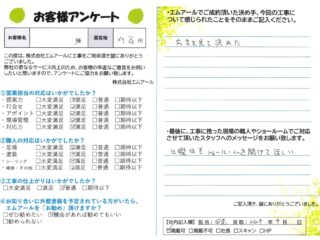 お客様アンケート
お客様名
様
居住地
刈谷市
この度は、株式会社エムアールに工事をご用命頂き誠にありがとう
ございました。
弊社の更なるサービス向上のため、お客様の率直なご意見をお伺い
したいと思いますので、アンケートにご協力をお願い致します。
株式会社エムアール
①営業担当の対応はいかがでしたか？
・提案力 □大変満足 □満足 □普通 □期待以下
・打合せ □大変満足 □満足 □普通 □期待以下
・アポイント □大変満足 □満足 □普通 □期待以下
・現場管理 □大変満足 □満足 □普通 □期待以下
・対応力 □大変満足 □満足 □普通 □期待以下
②職人の対応はいかがでしたか？
□大変満足 □満足 □普通 □期待以下
□大変満足 □満足 □普通 □期待以下
□大変満足 □満足 □普通 □期待以下
③工事の仕上がりはいかがでしたか？
□大変満足 □満足 □普通 □期待以下
④お知り合いに外壁塗装を予定されている方がいたら、
エムアールを「お勧め」頂けますか？
□ぜひ勧めたい □機会があれば勧めてもいい
□勧められない
・エムアールでご成約頂いた決め手、今回の工事に
ついて感じられたことをそのままご記入ください。
広告を見て決めた
・最後に、工事に携った現場の職人やショールームでご対応
させて頂いたスタッフへのメッセージをお願い致します。
日曜日もショールームを開けてほしい
ご記入頂き、誠にありがとうございました。
【社内記入欄】
□掲載可 □掲載不可 □社長 □スキャン □HP